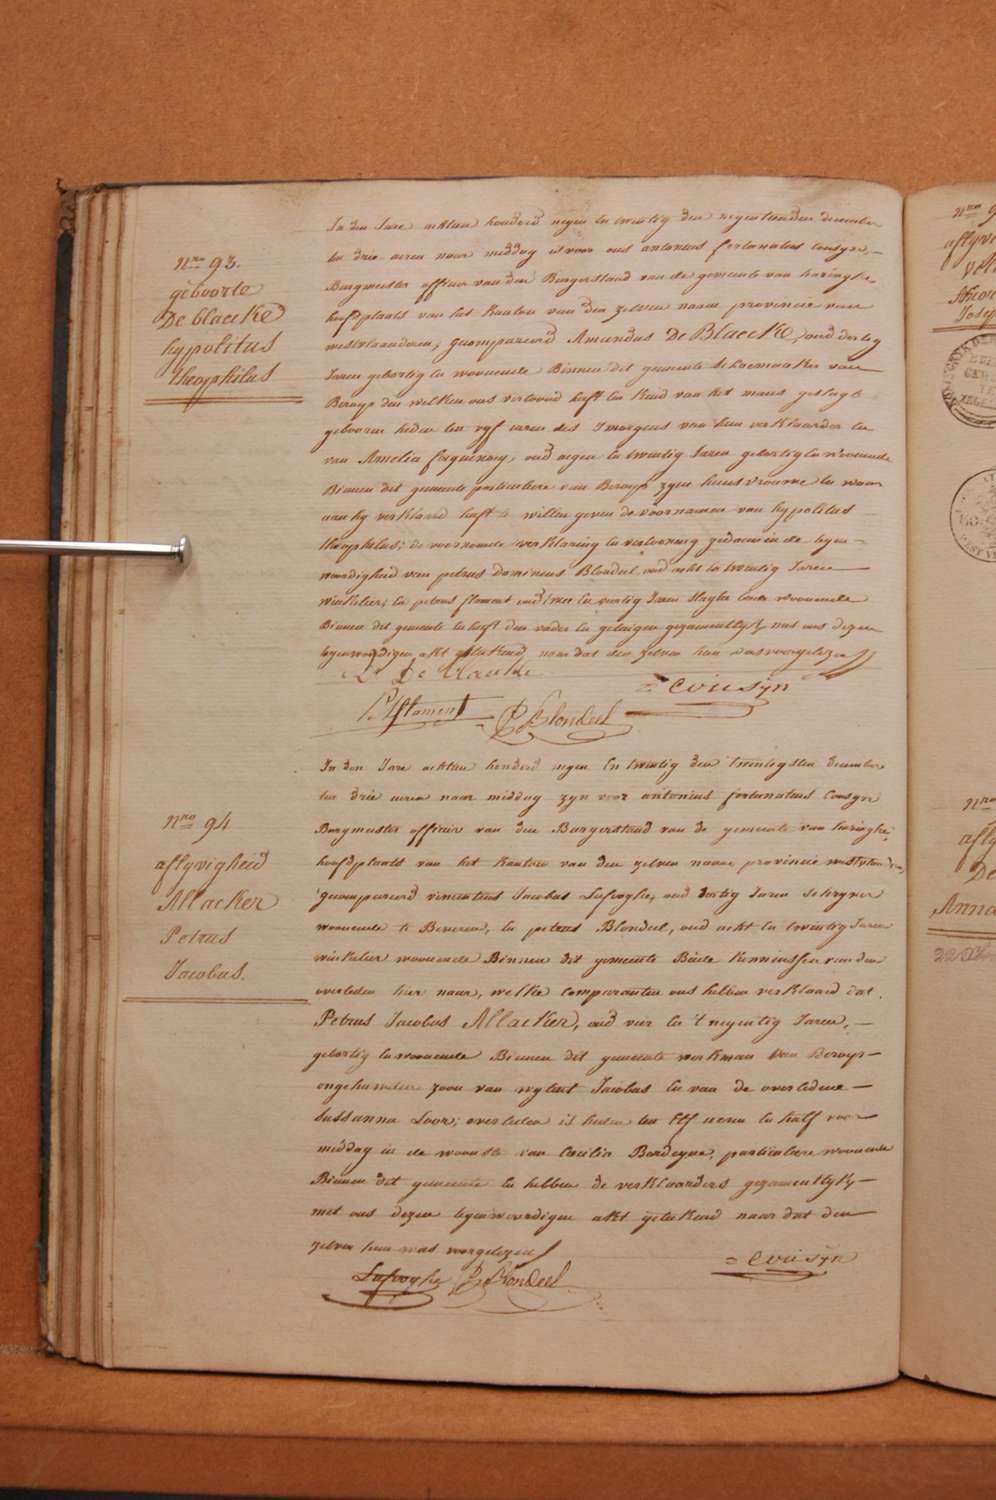 Nro 93.
geboorte
De blaecke
hypolitus
theophilus
In den Jare achtien honderd negen en twintig den negentienden december
ten drie uren naer middag is voor ons antonius fortunatus Cousyn,
Burgmeester officier van den Burgerstand van de gemeente van haringhe
hoofdplaats van het kanton van den zelven naam provincie van
westvlaanderen; gecompareerd Amandus De Blaecke, oud dertig
Jaren geboortig en woonende Binnen dit gemeente schoenmaker van
Beroep den welken ons vertoond heeft een kind van het mans geslagt
gebooren heden ten vyf uren des s'morgens van hem verklaarder en
van Amelia , oud negen en twintig Jaren geboortig en woonende
Binnen dit gemeente particuliere van Beroep zyne huisvrouwe en waer
aan hy verklaard heeft te willen geven de voornamen van hypolitus
theophilus; de voornoemde verklaring en vertooning gedaen in de tegen-
woordigheid van petrus dominicus Blondeel oud acht en twintig Jaren
winkelier, en petrus flament oud twee en veertig Jaren slagter beide woonende
Binnen dit gemeente en heeft den vader en getuigen gezamentlyk met ons dezen
tegenwoordigen akt geteekend naar dat den zelven hun was voorgelezen
A De Blaecke
Cousyn
P. flament
P. Blondeel
Nro 94
aflyvigheid
Allacker
Petrus
Jacobus.
In den Jare achtien honderd negen en twintig den twintigsten december
ten drie uren naer middag zyn voor antonius fortunatus Cousyn
Burgmeester officier van den Burgerstand van de gemeente van haringhe
hoofdplaats van het kanton van den zelven naam provincie westvlaanderen,
gecompareerd vincentius Jacobus Lafoughe, oud dertig Jaren schryner
woonende te Beveren, en petrus Blondeel, oud acht en twintig Jaren
winkelier woonende Binnen dit gemeente Beide kennissen van den
overleden hier naer, welke comparanten ons hebben verklaard dat
Petrus Jacobus Allacker, oud vier en t'negentig Jaren,
geboortig en woonende Binnen dit gemeente werkman van Beroep
ongehuwden zoon van wylent Jacobus en van de overledene
Sussanna Loor; overleden is heden ten Elf uren en half voor
middag in de woonste van Cecilia Bardeyne, particuliere woonende
Binnen dit gemeente en hebben de verklaarders gezamentlyk
met ons dezen tegenwoordigen akt geteekend naar dat den
zelven hun was voorgelezen
Cousyn
Lafoughe P. Blondeel